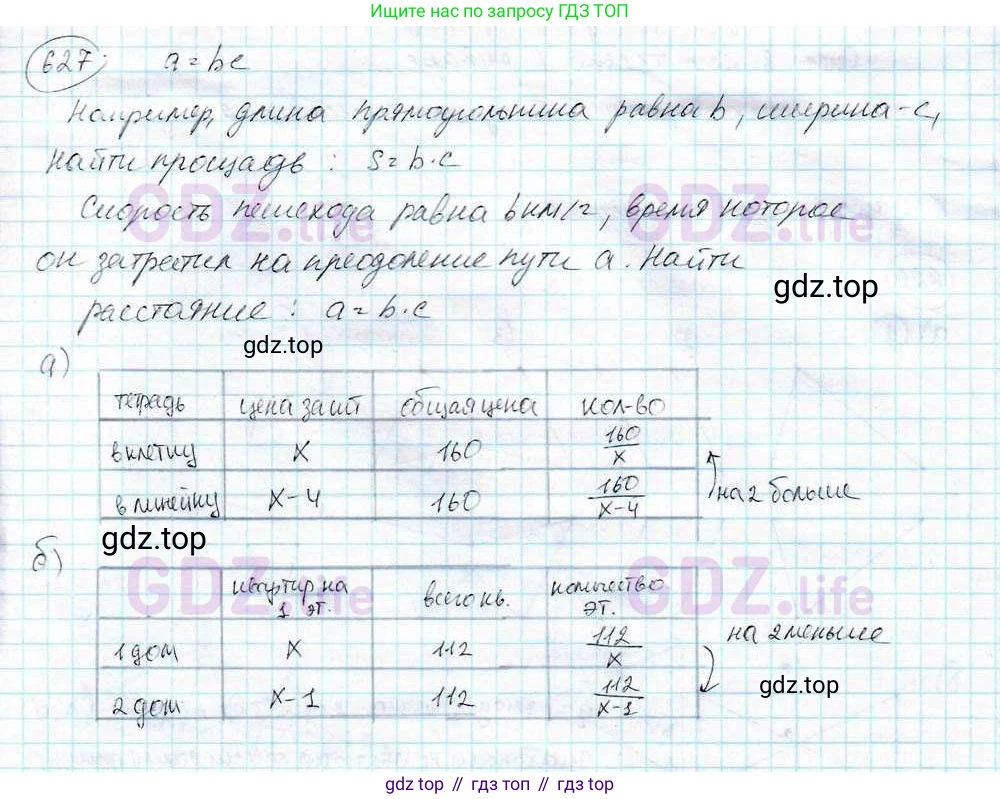 Ищите нас по запросу ГДЗ ТОП
627. a = bc
Например, длина прямоугольника равна b, ширина - c,
найти прощадь : S = b · c
Скорость пешехода равна b км/г, время которое
он затратил на преодоление пути a. Найти
расстояние : a = b · c
gdz.top
gdz.top
а)
тетрадь цена за шт общая цена кол-во
в клетку x 160 160/x
в линейку x-4 160 160/(x-4) на 2 больше
gdz.top
б)
квартир на 1 эт. всего кв. количество эт.
1 дом x 112 112/x на 2 меньше
2 дом x-1 112 112/(x-1)
gdz.top
GDZ.life GDZ.life
GDZ.life GDZ.life
gdz top // гдз топ // gdz top // гдз топ